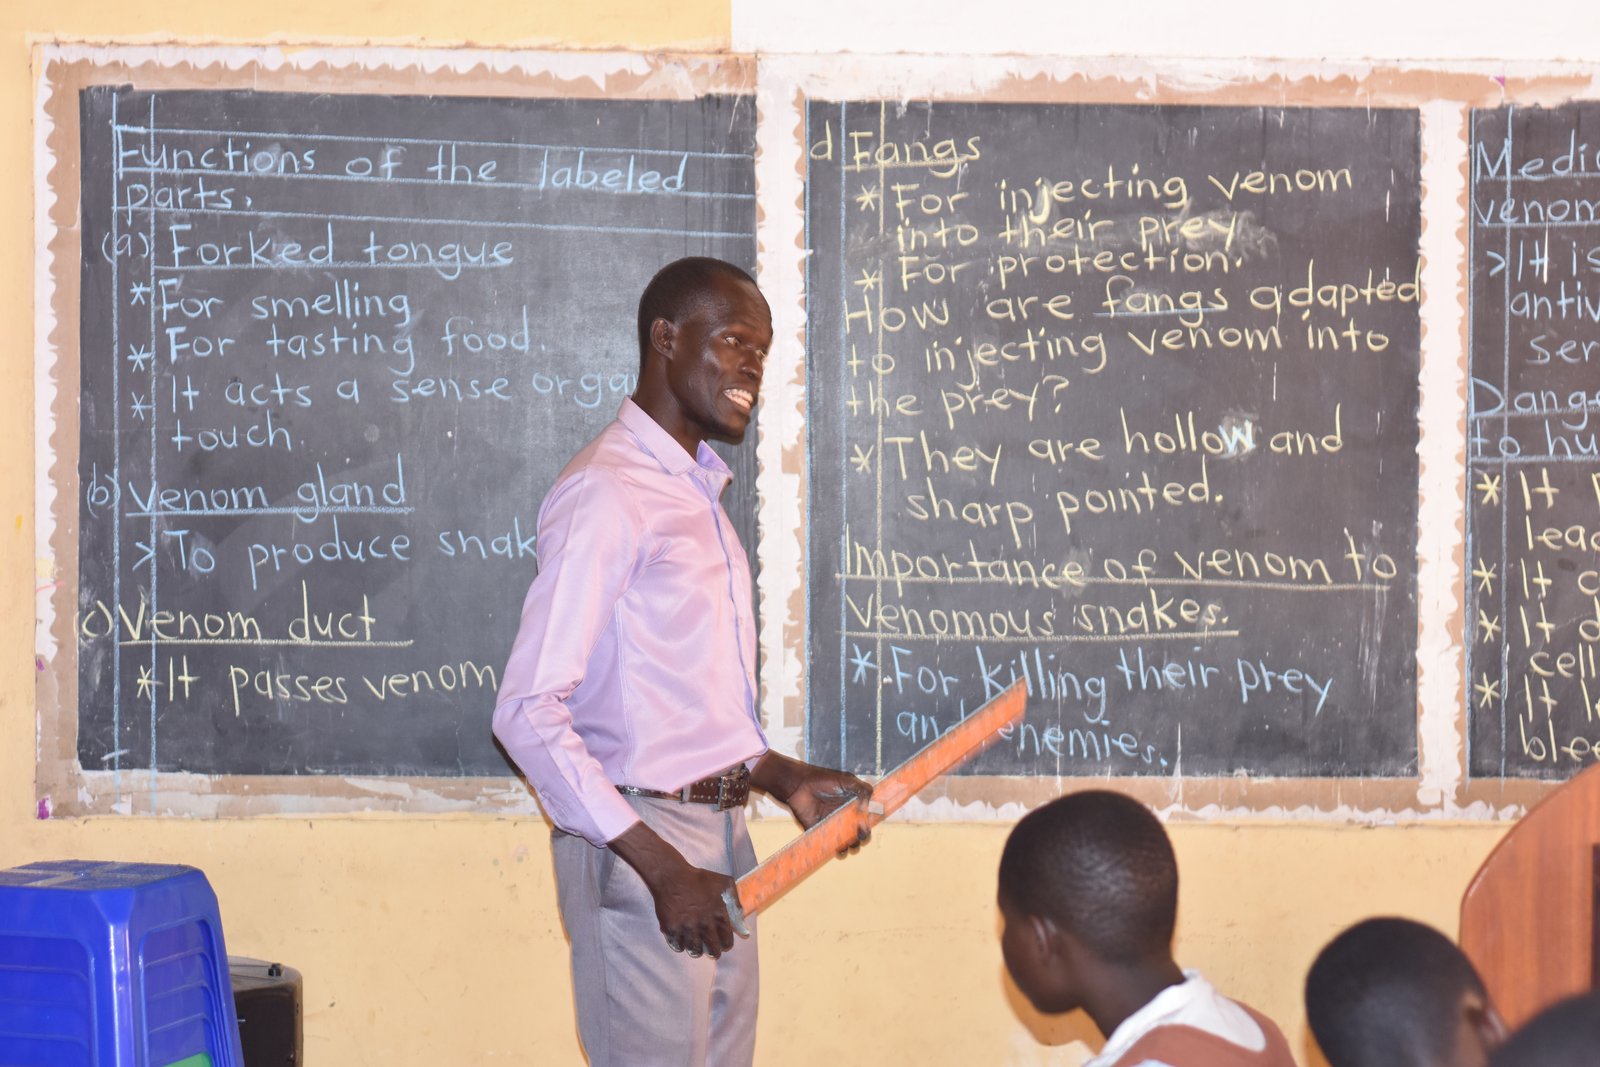 Functions of the labeled
parts.
(a) Forked tongue
* For smelling
* For tasting food.
* It acts a sense
touch.
(b) Venom gland
> To produce
c) Venom duct
* It passes venom
d Fangs
* For injecting venom
into their prey
* For protection.
How are fangs adapted
to injecting venom into
the prey?
* They are hollow and
sharp pointed.
Importance of venom to
venomous snakes.
* For killing their prey
and enemies.
venom
> It is
to
* It
* It
* It
* It